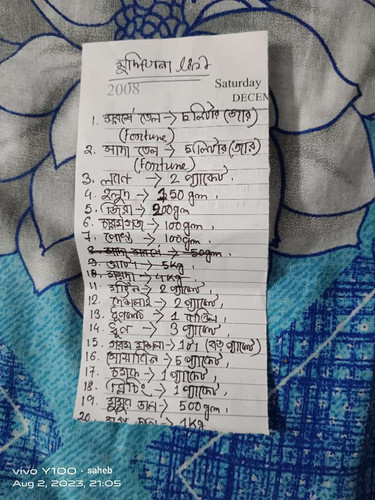 মুদিখানা List
2008
Saturday
DECEM
1. সরষে তেল → 5 লিটার (জার)
(Fortune)
2. সাদা তেল → 5 লিটার (জার)
(Fortune)
3. লবন → 2 প্যাকেট,
4. হলুদ → 150 gm,
5. জিরা → 200gm
6. → 100gm,
7. পোস্ত → 100gm,
8. → 50gm,
9. আটা → 5Kg,
10. ময়দা → 4Kg
11. → 2 প্যাকেট,
12. দেশলাই → 2 প্যাকেট
13. ধূপকাঠি → 1
14. → 3 প্যাকেট
15. গরম মশলা → 1টা (বড় প্যাকেট)
16. সোয়াবিন → 5 প্যাকেট,
17. → 1 প্যাকেট
18. → 1 প্যাকেট,
19. মুসুর ডাল → 500gm,
20. → 1Kg
vivo Y100 · saheb
Aug 2, 2023, 21:05